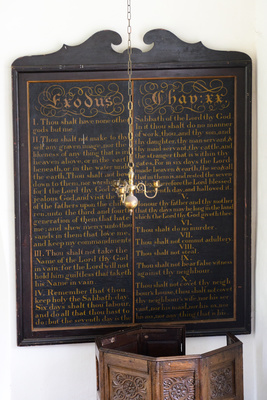 Exodus Chap: xx.
I. Thou shalt have none other
gods but me.
II. Thou shalt not make to thy
self any graven image, nor the
likeness of any thing that is in
heaven above, or in the earth
beneath, or in the water under
the earth. Thou shalt not bow
down to them, nor worship
for I the Lord thy God
jealous God, and visit the
of the fathers upon the
unto the third and fourth
generation of them that hate
me; and shew mercy unto
sands in them that love me
and keep my commandments
III. Thou shalt not take the
Name of the Lord thy God
in vain: for the Lord will not
hold him guiltless that taketh
his Name in vain.
IV. Remember that thou
keep holy the Sabbath day.
Six days shalt thou labour,
and do all that thou hast to
do: but the seventh day is the
Sabbath of the Lord thy God
In it thou shalt do no manner
of work, thou, and thy son, and
thy daughter, thy man servant &
thy maid servant, thy cattle, and
the stranger that is within thy
gates. For in six days the Lord
made heaven & earth, the sea & all
that in them is, and rested the seventh
wherefore the Lord blessed
day, and hallowed it.
thy father and thy mother
that thy days may be long in the land
which the Lord thy God giveth thee
VI.
Thou shalt do no murder
VII.
Thou shalt not commit adultery
VIII.
Thou shalt not steal
IX.
Thou shalt not bear false witness
against thy neighbour
X.
Thou shalt not covet thy neigh
bours house, thou shalt not covet
thy neighbour's wife, nor his ser
vant, nor his maid, nor his ox, nor
his ass, nor any thing that is his